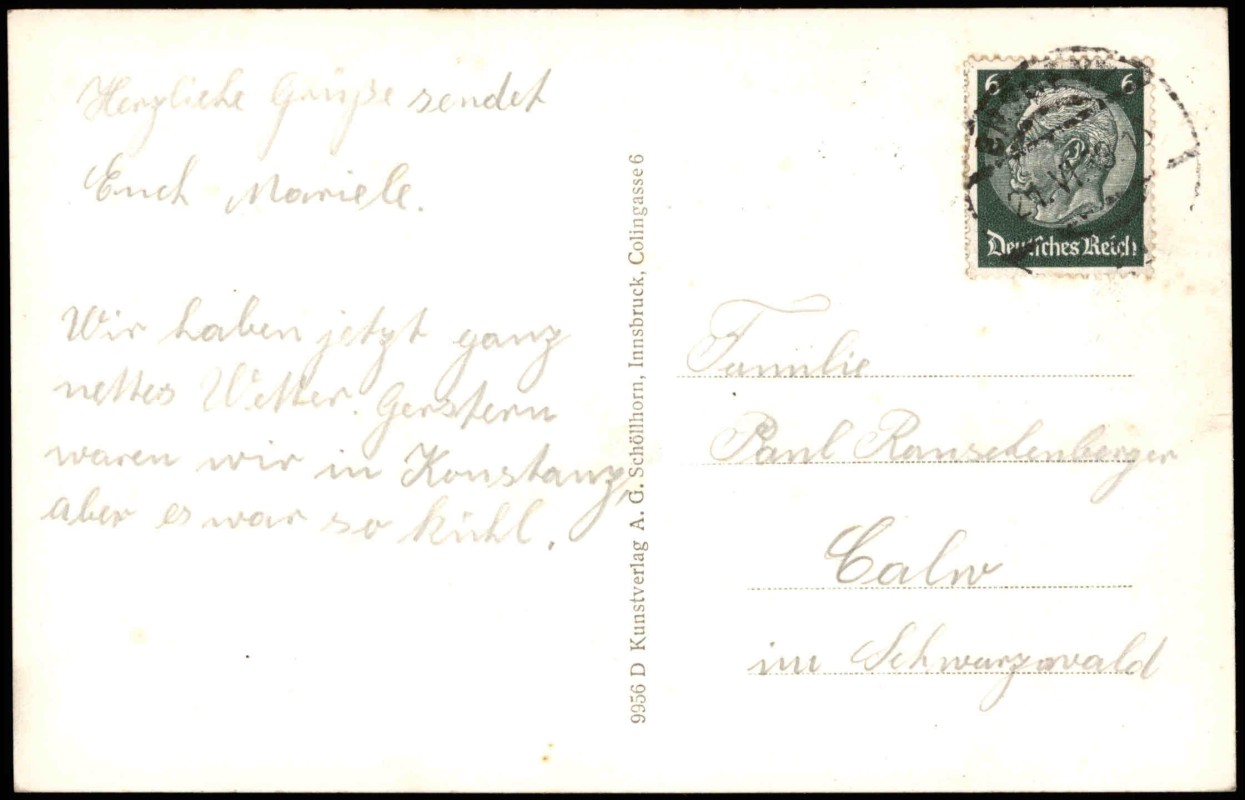 Herzliche Grüße sendet
Euch Mariele.
Wir haben jetzt ganz
nettes Wetter. Gerstern
waren wir in Konstanz,
aber es war so kühl.
9956 D Kunstverlag A. G. Schöllhorn, Innsbruck, Colingasse 6
6 6
Deutsches Reich
Familie
Paul Rauschenberger
Calw
im Schwarzwald